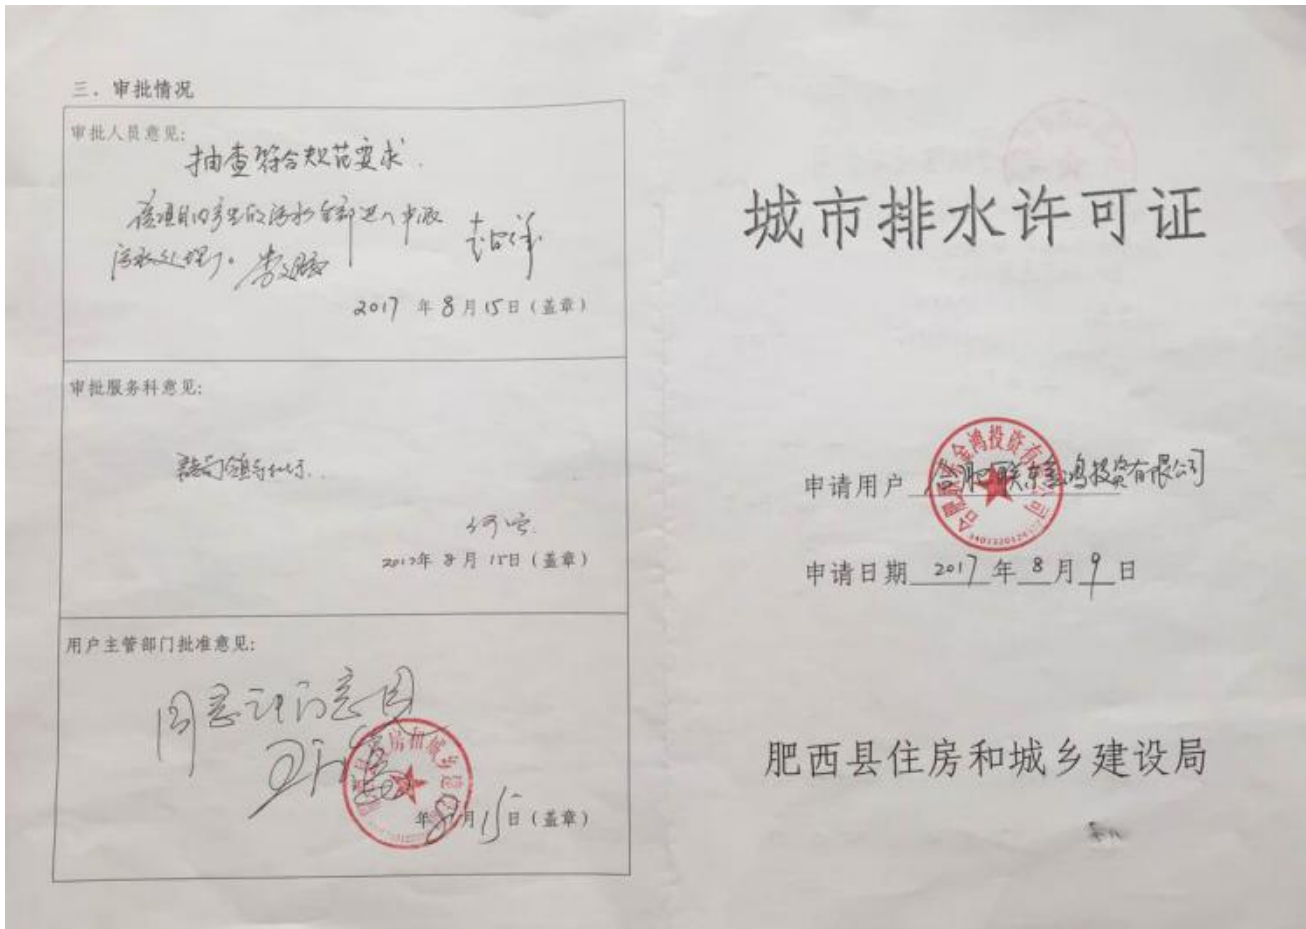 三、审批情况
审批人员意见:
抽查符合规范要求.
该项目内产生的污水全部进入中派
污水处理厂。
2017 年 8 月 15日（盖章）
审批服务科意见:
2017年 8 月 15日（盖章）
用户主管部门批准意见:
同意
年8月15日（盖章）
城市排水许可证
申请用户 合肥联东金鸿投资有限公司
申请日期 2017 年 8 月 9 日
肥西县住房和城乡建设局